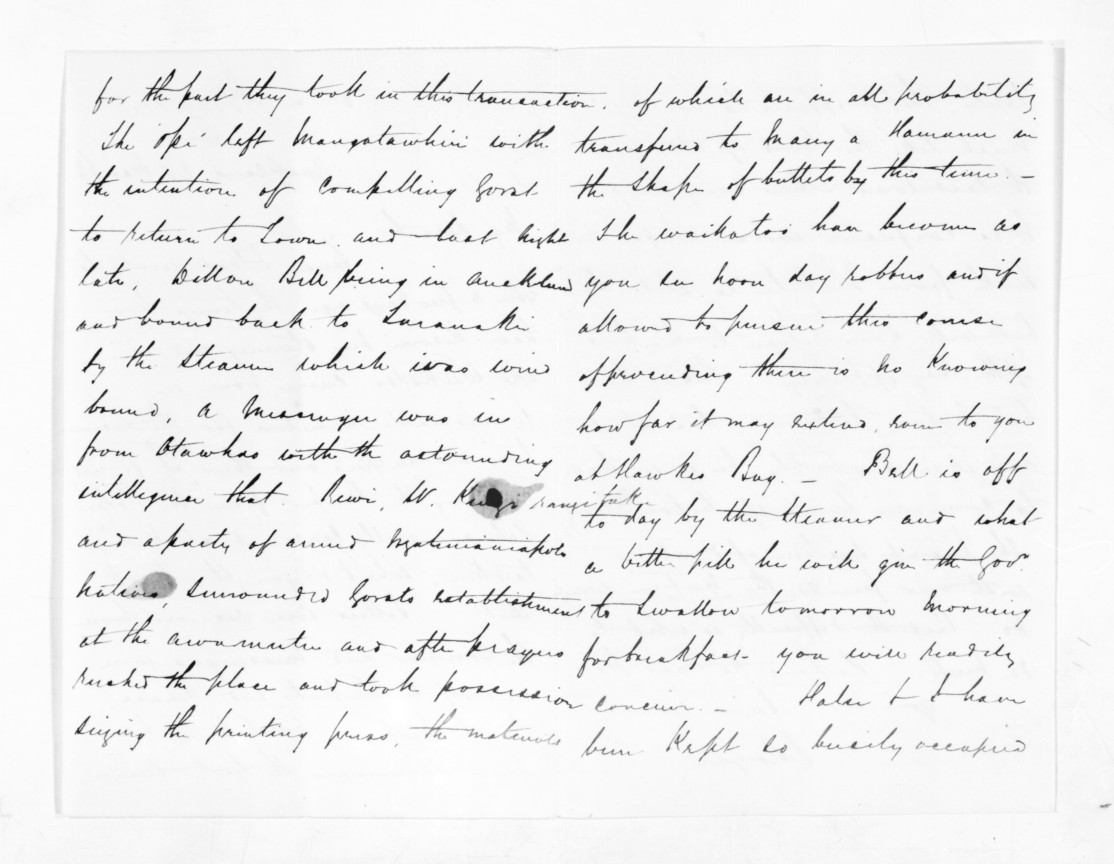 for the part they took in this transaction.
The 'opi' left Mangatawhiri with
the intention of compelling Gorst
to return to Town. and last night
late, Dillon Bell being in Auckland
and bound back to Taranaki
by the Steamer which was wind
bound, a Messenger was in
from Otawhao with the astounding
intelligence that. Rewi, W. Kingi rangitake
and a party of armed Ngatimaniapoto
natives, surrounded Gorsts establishment
at the awamutu and after prayers
rushed the place and took possession
siezing the printing press, the materials
of which are in all probability
transferred to Many a Hamann in
the shape of bullets by this time. –
The waikatos have become as
you see noon day robbers and if
allowed to pursue this course
of proceeding there is no Knowing
how far it may extend, even to you
at Hawkes Bay. – Bell is off
to day by the Steamer and what
a bitter pill he will give the Govr.
to Swallow tomorrow Morning
for breakfast – you will readily
conceive. – Halse & I have
been Kept so busily occupied